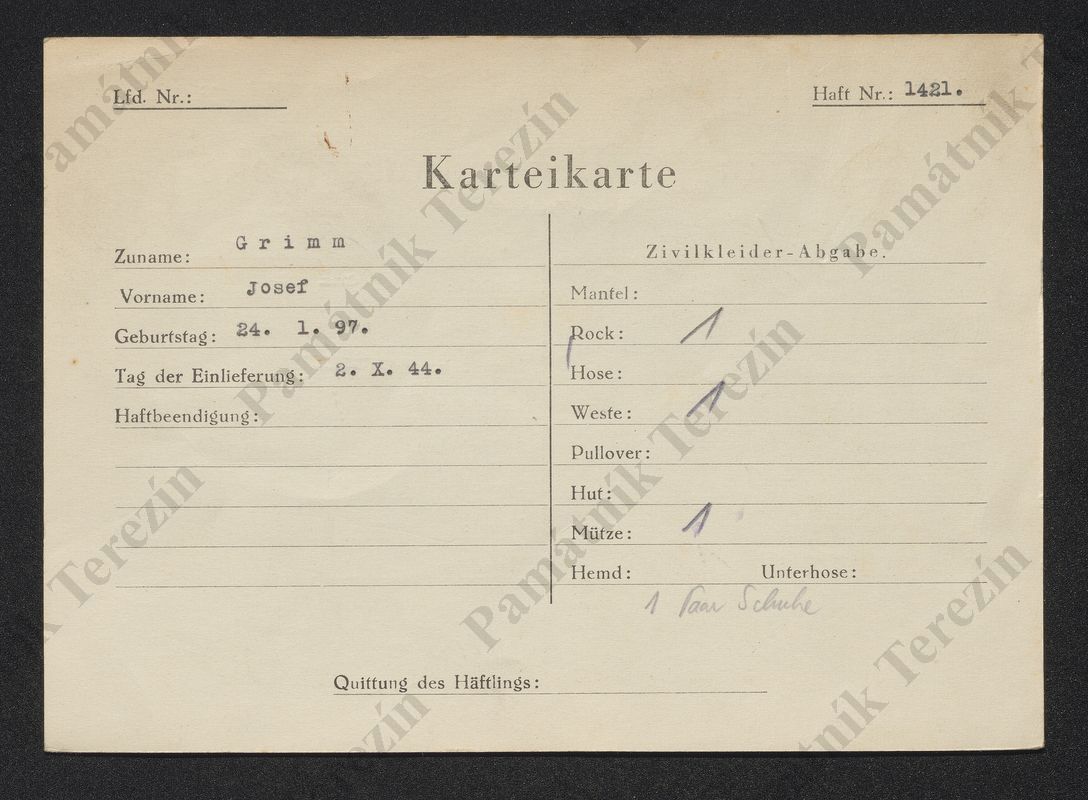 Lfd. Nr.:
Haft Nr.: 1421.
Karteikarte
Zuname: Grimm
Vorname: Josef
Geburtstag: 24. 1. 97.
Tag der Einlieferung: 2. X. 44.
Haftbeendigung:
Zivilkleider-Abgabe.
Mantel:
Rock: 1
Hose:
Weste: 1
Pullover:
Hut:
Mütze: 1
Hemd: Unterhose:
1 Paar Schuhe
Quittung des Häftlings:
Památník Terezín
Památník Terezín
Památník Terezín